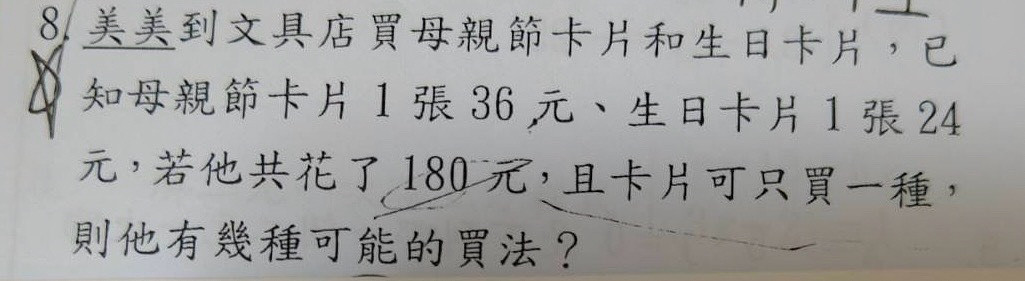 8. 美美到文具店買母親節卡片和生日卡片，已
知母親節卡片1張36元、生日卡片1張24
元，若他共花了180元，且卡片可只買一種，
則他有幾種可能的買法？